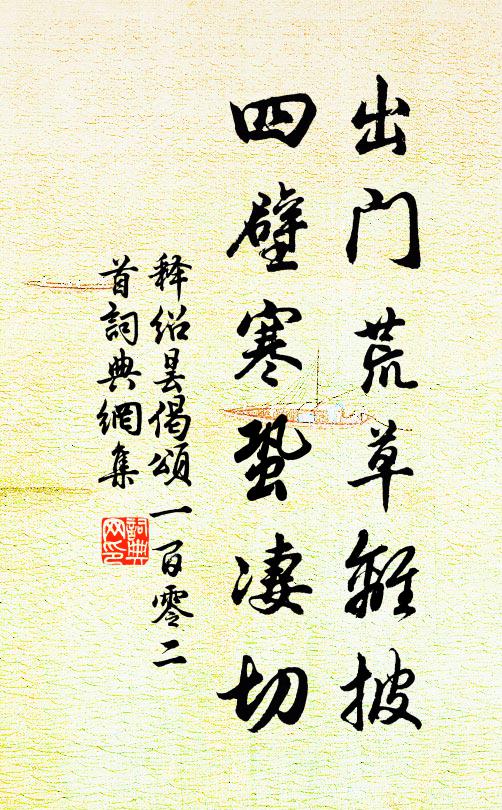 出门荒草离披
四壁寒蛩凄切
释绍昙偈颂一百零二
首词典网集
词典
网印